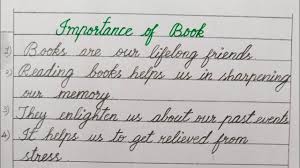 Importance of Book
1) Books are our lifelong friends.
2) Reading books helps us in sharpening
our memory.
3) They enlighten us about our past events
4) It helps us to get relieved from
stress